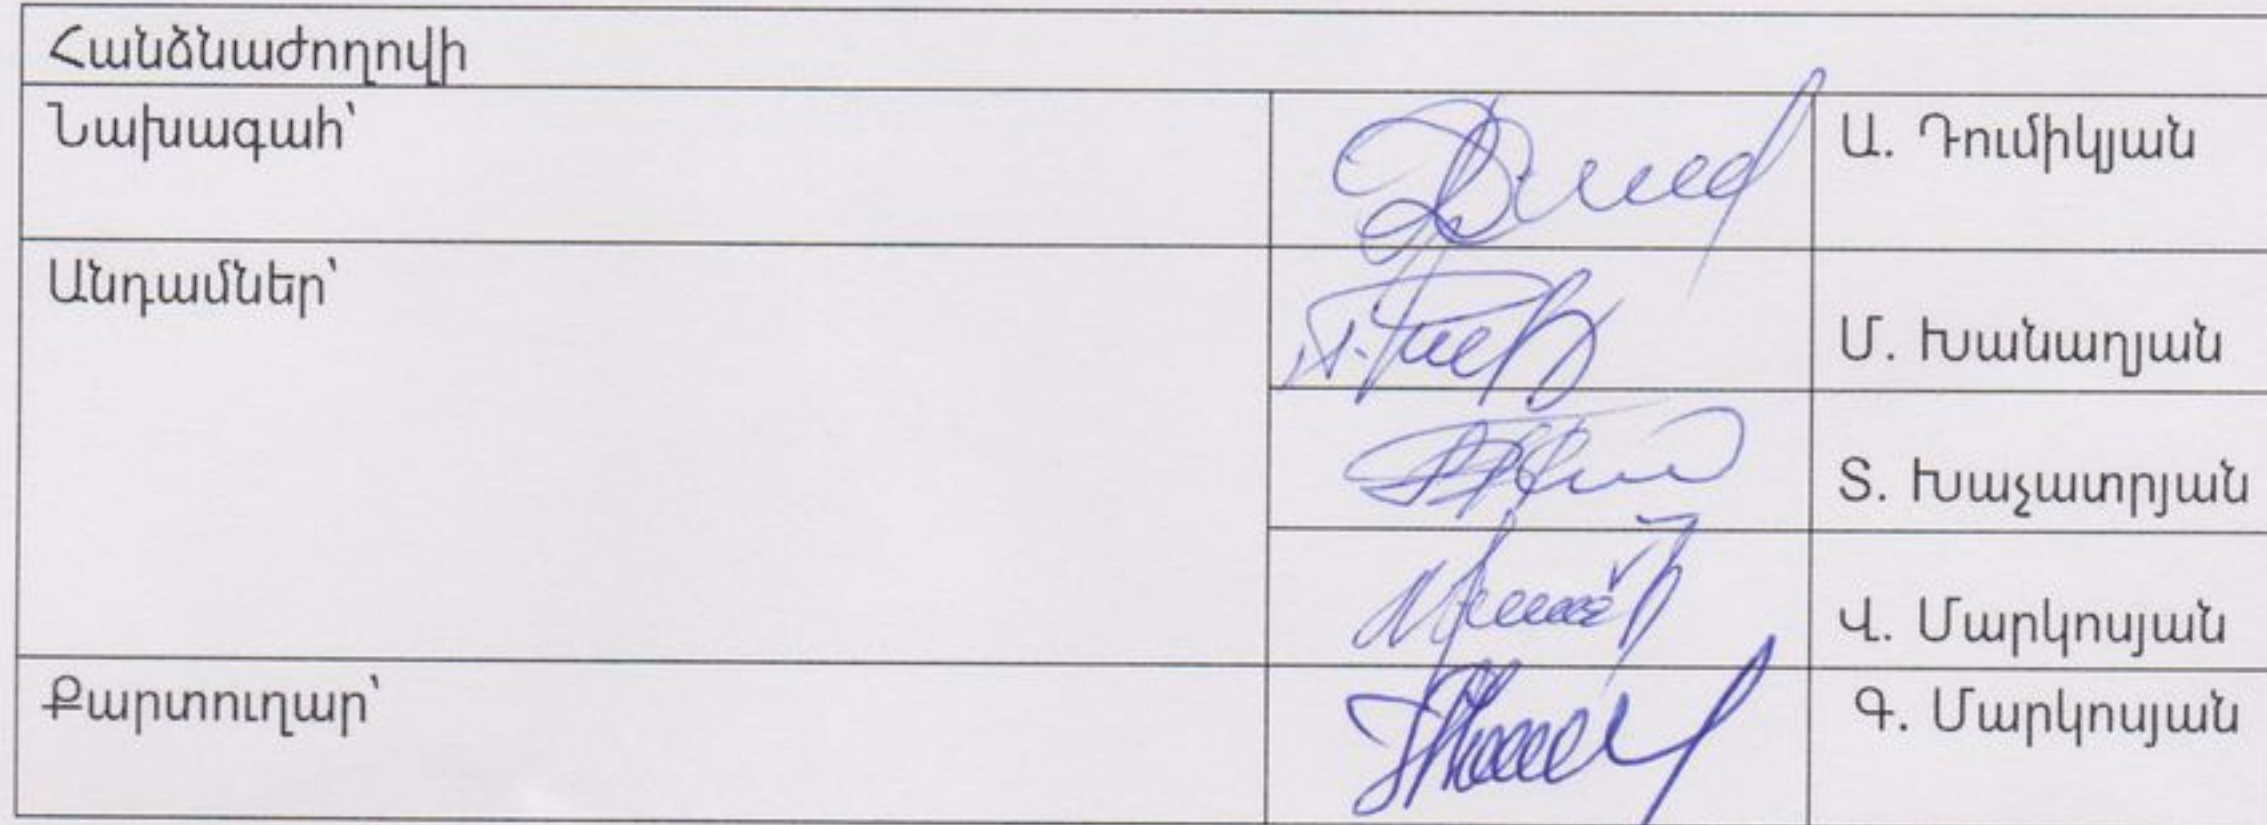 Հանձնաժողովի
Նախագահ՝ Ա. Դումիկյան
Անդամներ՝
Մ. Խանաղյան
Տ. Խաչատրյան
Վ. Մարկոսյան
Քարտուղար՝ Գ. Մարկոսյան